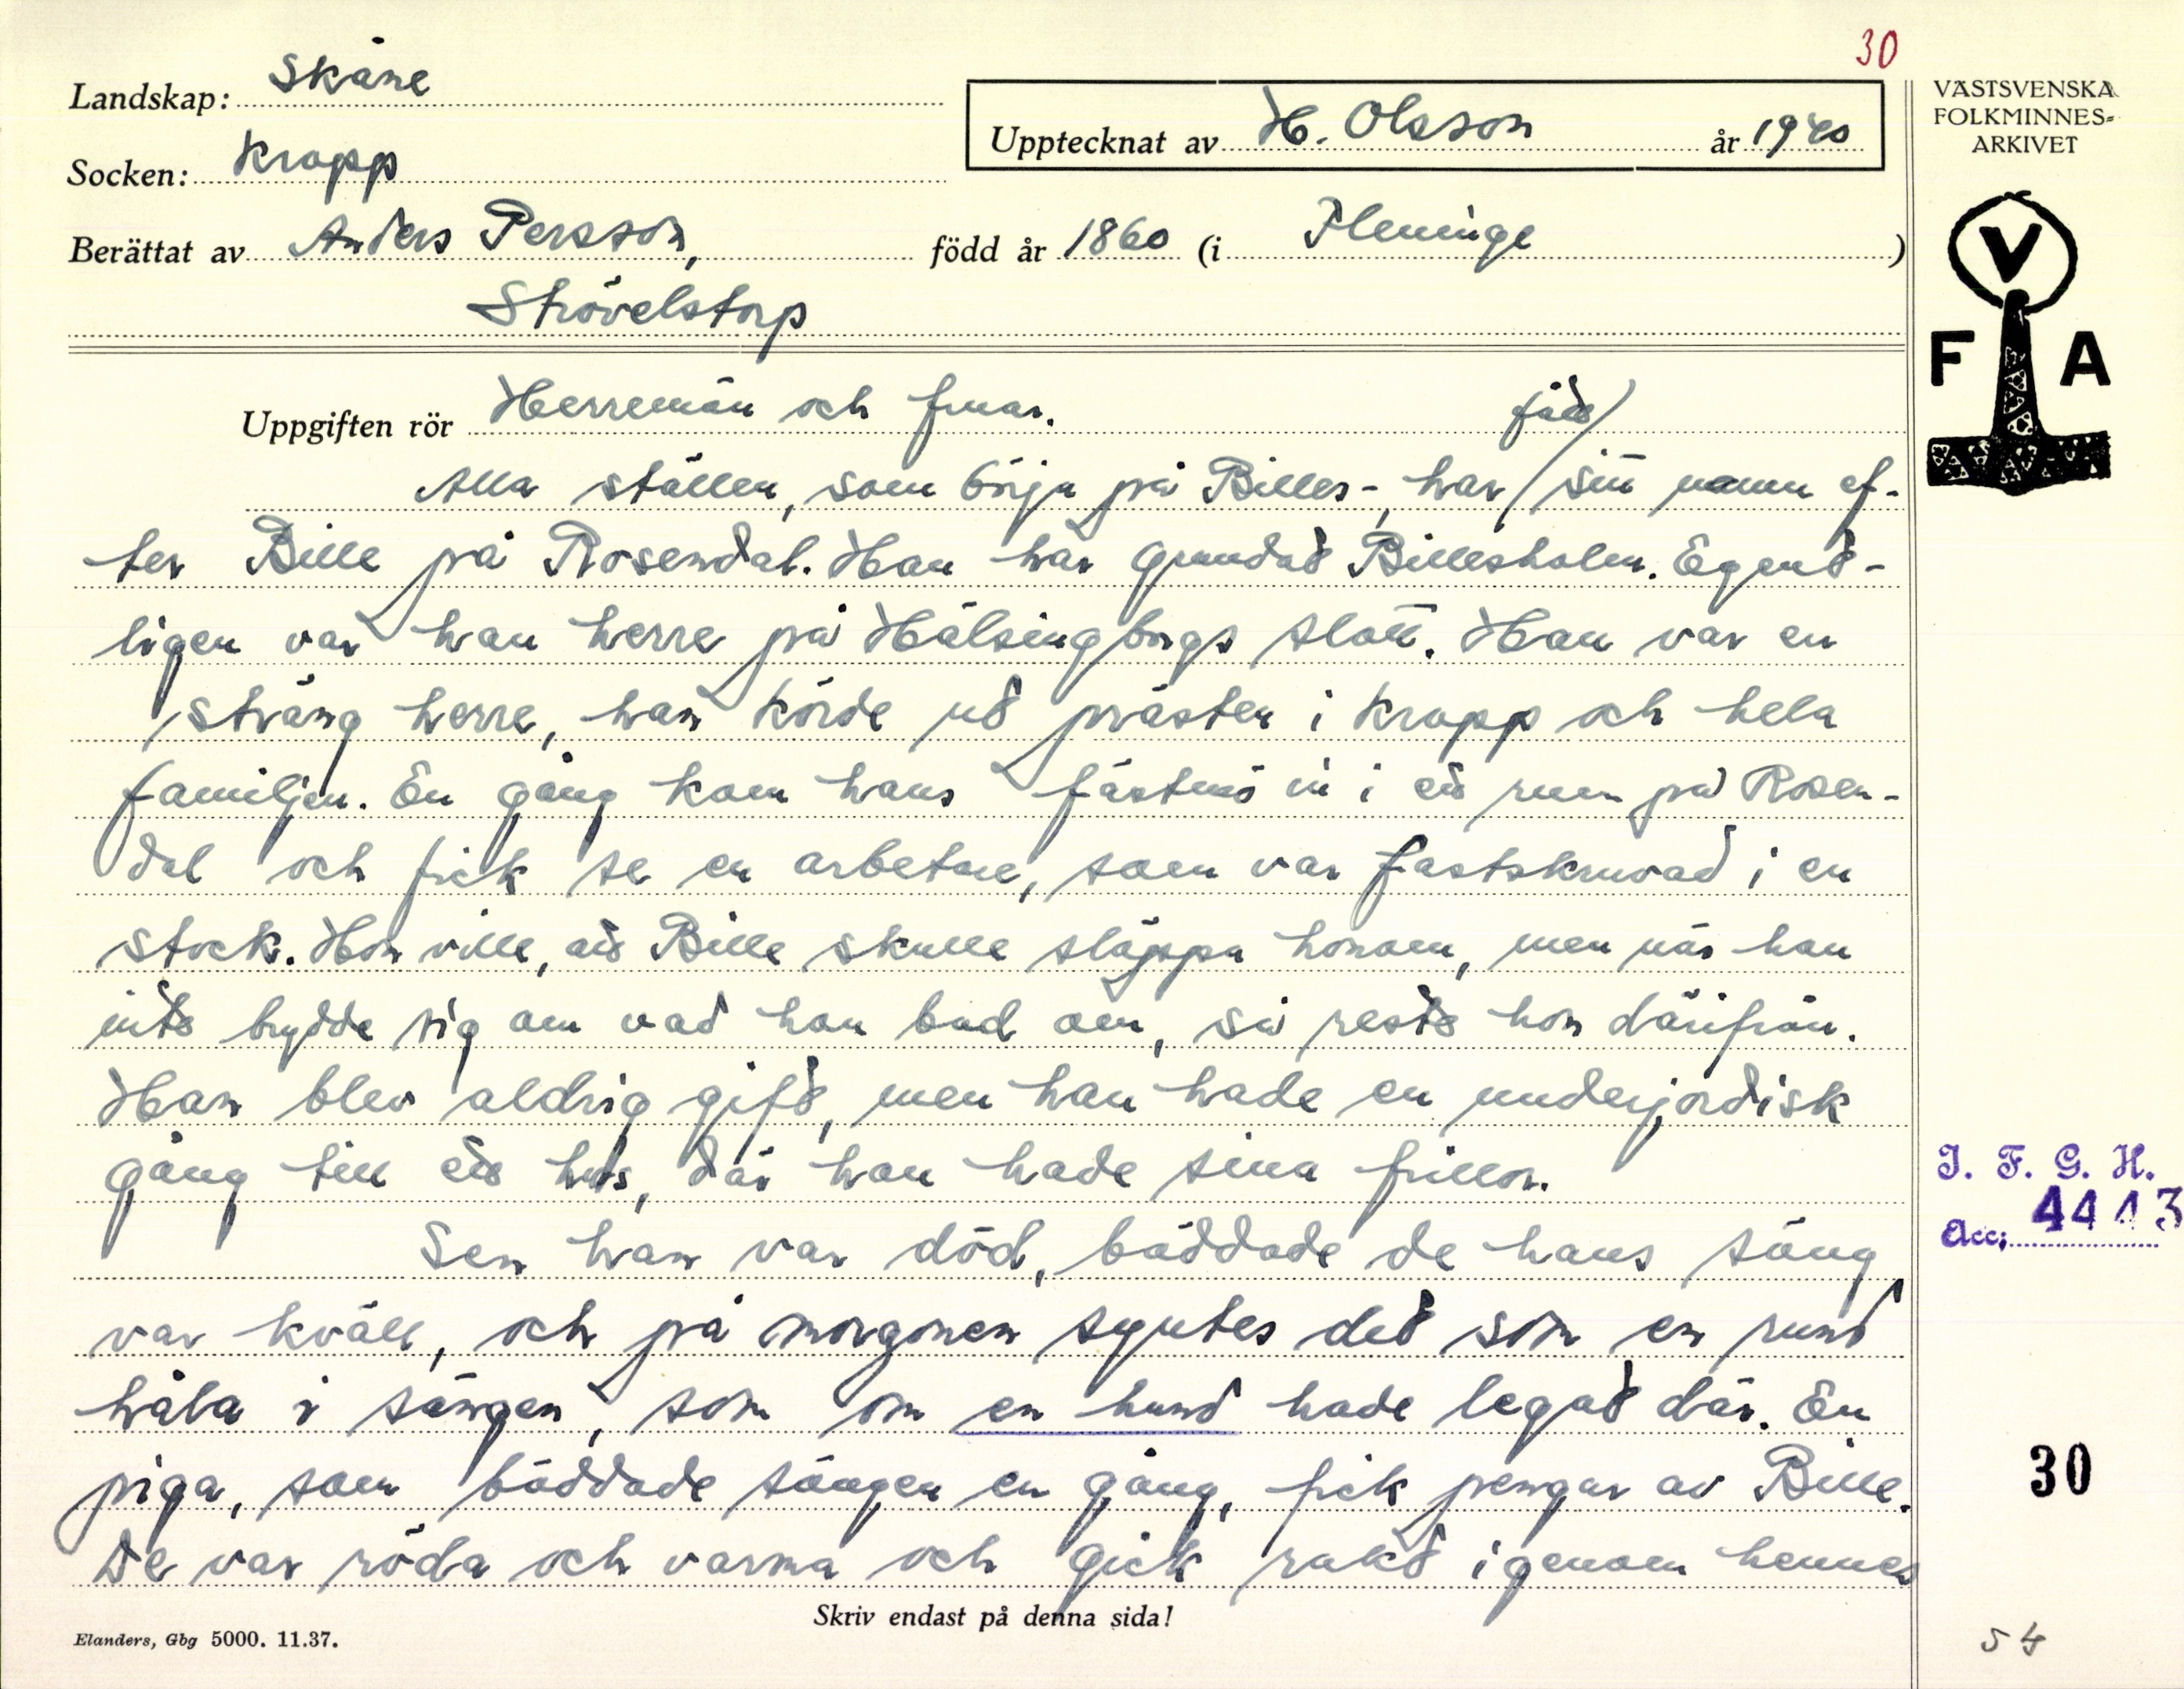 30
Landskap: Skåne
Upptecknat av H. Olsson år 1940
Socken: Kropp
Berättat av Anders Persson, född år 1860 (i Fleninge)
Strövelstorp
VÄSTSVENSKA
FOLKMINNES-
ARKIVET
V
F A
Uppgiften rör Herremän och fruar.
fått/
Alla ställen, som börja på Billes-, har / sitt namn ef-
ter Bille på Rosendal. Han har grundat Billesholm. Egent-
ligen var han herre på Hälsingborgs slott. Han var en
sträng herre, han körde ut prästen i Kropp och hela
familjen. En gång kom hans fästmö in i ett rum på Rosen-
dal och fick se en arbetare, som var fastskruvad i en
stock. Hon ville, att Bille skulle släppa honom, men när han
inte brydde sig om vad hon bad om, så reste hon därifrån.
Han blev aldrig gift, men han hade en underjordisk
gång till ett hus, där han hade sina frillor.
Sen han var död, bäddade de hans säng
var kväll, och på morgonen syntes det som en rund
håla i sängen, som om en hund hade legat där. En
piga, som bäddade sängen en gång, fick pengar av Bille.
De var röda och varma och gick rakt igenom hennes
I. F. G. H.
Acc: 4413
30
Skriv endast på denna sida!
Elanders, Gbg 5000. 11.37.